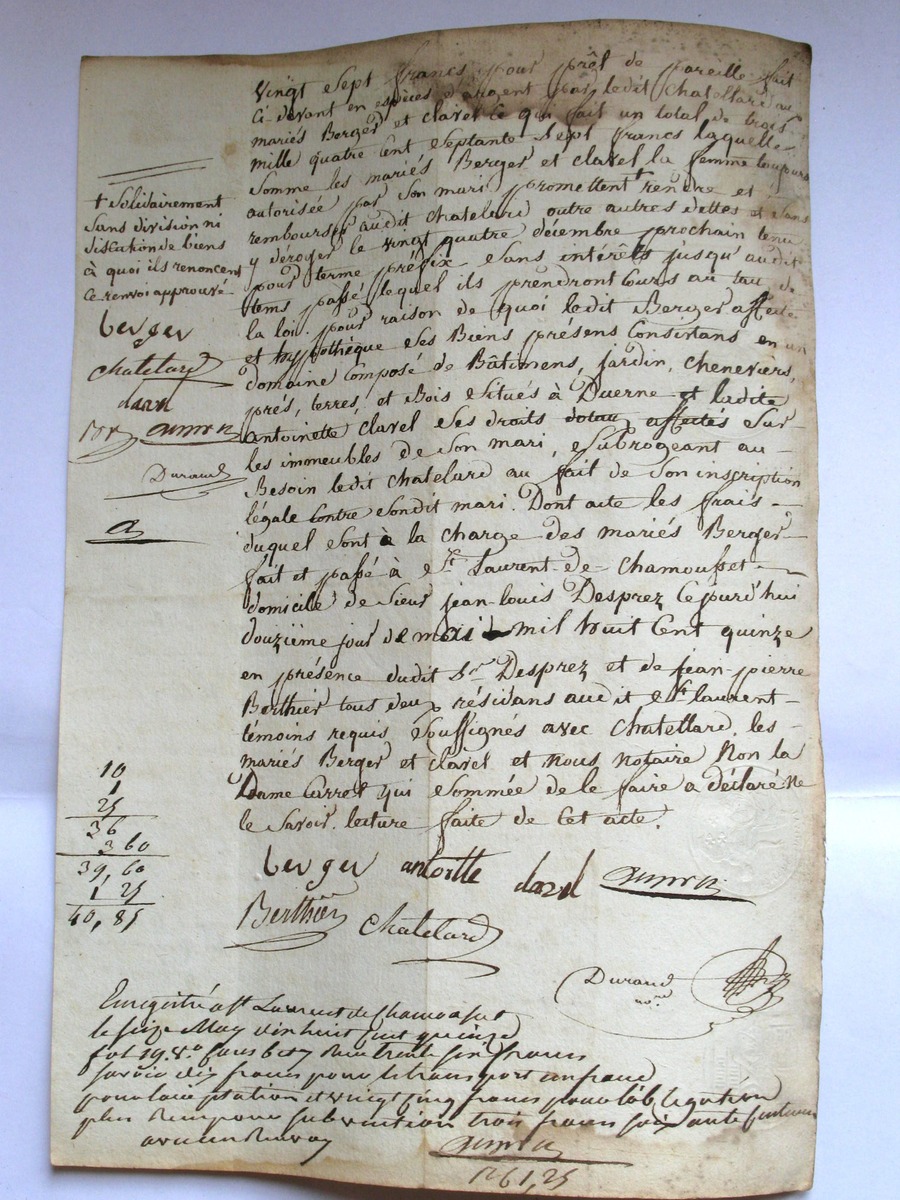 vingt sept francs pour prêt de pareille fait
ci-devant en espèces d'argent par ledit Chatellard au
mariés Berger et clavel ce qui fait un total de trois
mille quatre cent septante sept francs laquelle
somme les mariés Berger et clavel la femme toujours
autorisée par son mari promettent + rendre et
rembourser audit chatelard outre autres dettes et sans
y déroger le vingt quatre décembre prochain tenu
pour terme préfix sans intérêts jusqu'audit
tems passé lequel ils prendront cours au tau de
la loi. pour raison de quoi ledit Berger affecte
et hypothèque ses Biens présens Consistans en un
domaine composé de Bâtimens, jardin, cheneviers,
prés, terres, et Bois situés à Duerne et ladite
antoinette clavel ses droits dotau affectés sur
les immeubles de son mari, subrogeant au
Besoin ledit chatelard au fait de son inscription
légale contre sondit mari. Dont acte les frais
duquel sont à la charge des mariés Berger
fait et passé à St. Laurent-de-Chamousset
domicile de sieur jean-louis Desprez cejourd'hui
douzième jour de mai mil huit cent quinze
en présence dudit Sr. Desprez et de jean-pierre
Berthier tous deux résidans audit St laurent
témoins requis soussignés avec chatellard, les
mariés Berger et clavel et nous notaire Non la
Dame qui sommée de le faire a déclaré ne
le savoir. lecture faite de cet acte.
+ solidairement
sans division ni
discution de biens
à quoi ils renoncent
ce renvoi approuvé
berger
chatelard
Durand
10
1
25
36
3 60
39, 60
1 25
40, 85
berger
Berthier chatelard
Durand
nore
Enregistré à St Laurent de Chamousset
le seize May mil huit cent quinze
fol 19 Vo francs
savoir dix francs pour le transport un franc
pour l'acceptation et vingt cinq francs pour l'obligation
plus pour subvention trois francs soixante centimes